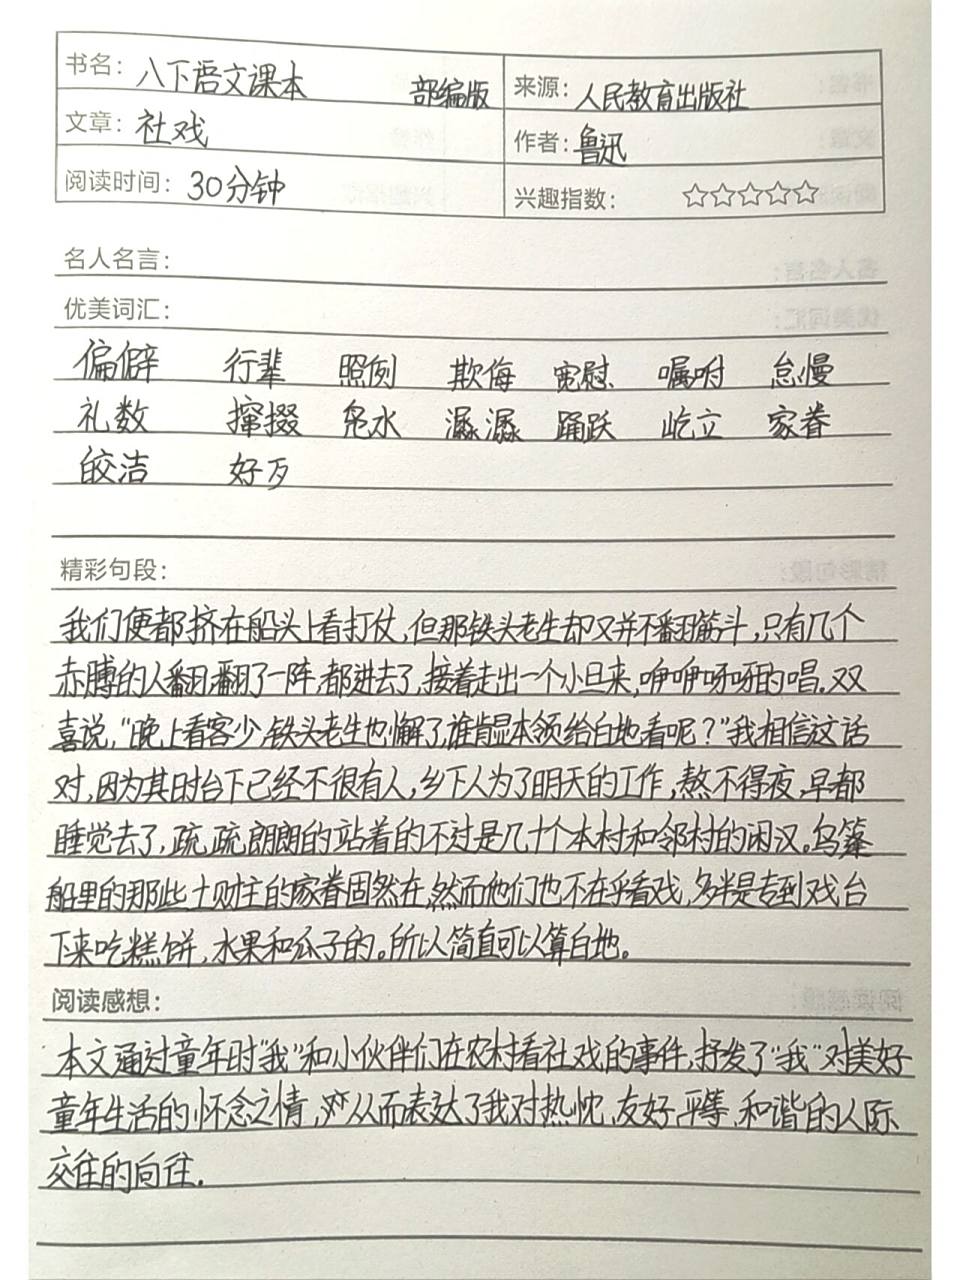 书名：八下语文课本 部编版 来源：人民教育出版社
文章：社戏 作者：鲁迅
阅读时间：30分钟 兴趣指数：☆☆☆☆☆
名人名言：
优美词汇：
偏僻 行辈 照例 欺侮 宽慰 嘱咐 怠慢
礼数 撺掇 凫水 潺潺 踊跃 屹立 家眷
皎洁 好歹
精彩句段：
我们便都挤在船头上看打仗，但那铁头老生却又并不翻筋斗，只有几个
赤膊的人翻，翻了一阵，都进去了，接着走出一个小旦来，咿咿呀呀的唱。双
喜说，“晚上看客少，铁头老生也懈了，谁肯显本领给白地看呢？”我相信这话
对，因为其时台下已经不很有人，乡下人为了明天的工作，熬不得夜，早都
睡觉去了，疏疏朗朗的站着的不过是几十个本村和邻村的闲汉。乌篷
船里的那些土财主的家眷固然在，然而他们也不在乎看戏，多半是专到戏台
下来吃糕饼，水果和瓜子的。所以简直可以算白地。
阅读感想：
本文通过童年时“我”和小伙伴们在农村看社戏的事件，抒发了“我”对美好
童年生活的怀念之情，从而表达了我对热忱、友好、平等、和谐的人际
交往的向往。